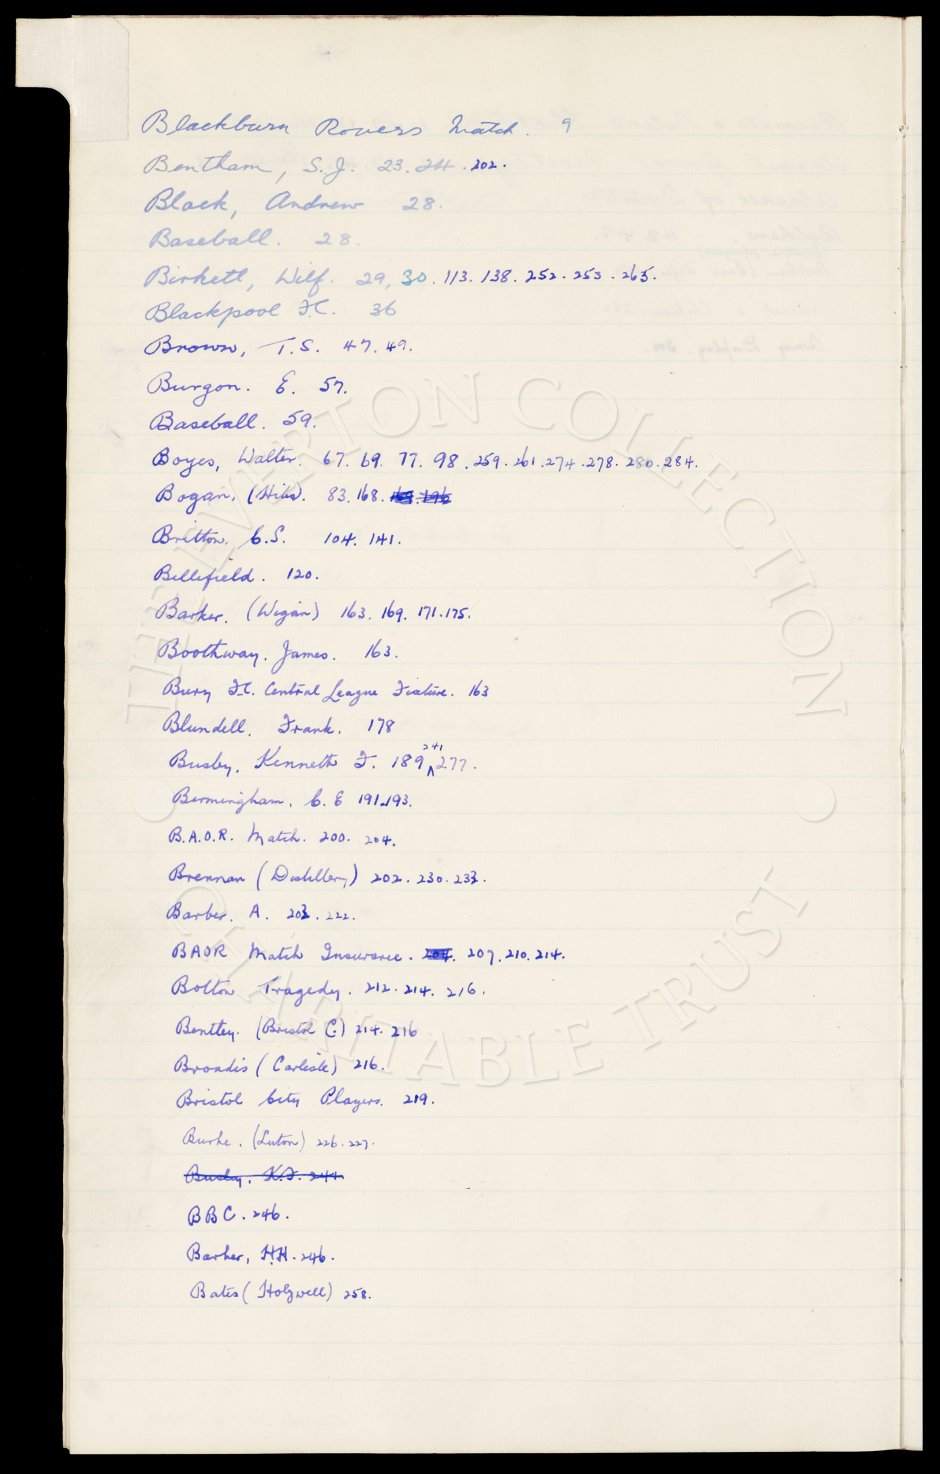 Blackburn Rovers Match. 9
Bentham, S.J. 23. 24. 202.
Black, Andrew 28.
Baseball. 28.
Birkett, Wilf. 29, 30. 113. 138. 252. 253. 265.
Blackpool F.C. 36
Brown, T.S. 47. 49.
Burgon. E. 57.
Baseball. 59.
Boyes, Walter. 67. 69. 77. 98. 259. 261. 274. 278. 280. 284.
Bogan. (Hibs). 83. 168.
Britton. C.S. 104. 141.
Bellefield. 120.
Barker. (Wigan) 163. 169. 171. 175.
Boothway. James. 163.
Bury F.C. Central League Fixture. 163
Blundell. Frank. 178
Busby. Kenneth F. 189 241 277.
Birmingham. C.E 191. 193.
B.A.O.R. Match. 200. 204.
Brennan (Distillery) 202. 230. 233.
Barber. A. 203. 222.
BAOR Match Insurance. 204. 207. 210. 214.
Bolton Tragedy. 212. 214. 216.
Bentley. (Bristol C.) 214. 216
Broadis (Carlisle) 216.
Bristol City Players. 219.
Burke. (Luton) 226. 227.
Busby. K.F. 241
BBC. 246.
Barker, H.H. 246.
Bates (Holywell) 258.
THE EVERTON COLLECTION
CHARITABLE TRUST